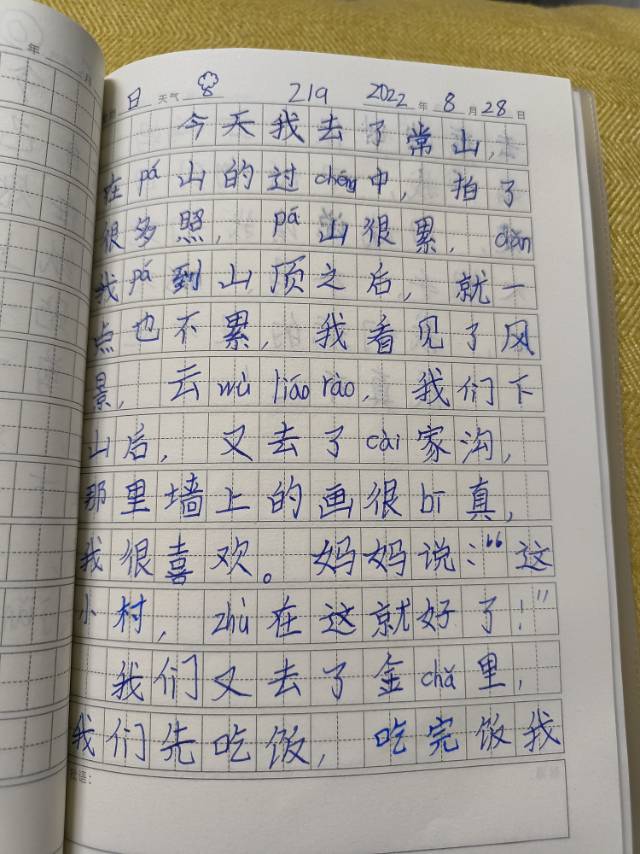 日 天气 219 2022年8月28日
今天我去了常山,
在pá山的过chéng中,拍了
很多照,pá山很累,dàn
我pá到山顶之后,就一
点也不累,我看见了风
景,云wù liáo rào,我们下
山后,又去了cài家沟,
那里墙上的画很bī真,
我很喜欢。妈妈说:“这
小村,zhù在这就好了!”
我们又去了金chǎ里,
我们先吃饭,吃完饭我